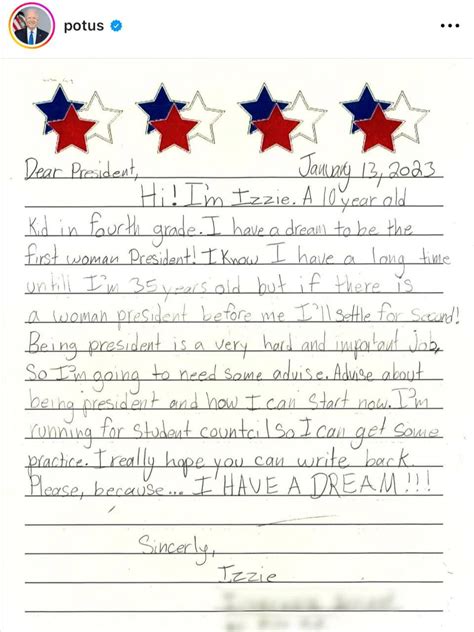 potus
Dear President, January 13, 2023
Hi! I'm Izzie. A 10 year old
Kid in fourth grade. I have a dream to be the
first woman President! I Know I have a long time
untill I'm 35 years old but if there is
a woman president before me I'll settle for Second!
Being president is a very hard and important job,
So I'm going to need some advise. Advise about
being president and how I can start now. I'm
running for student countcil so I can get some
practice. I really hope you can write back.
Please, because... I HAVE A DREAM!!!
Sincerly,
Izzie